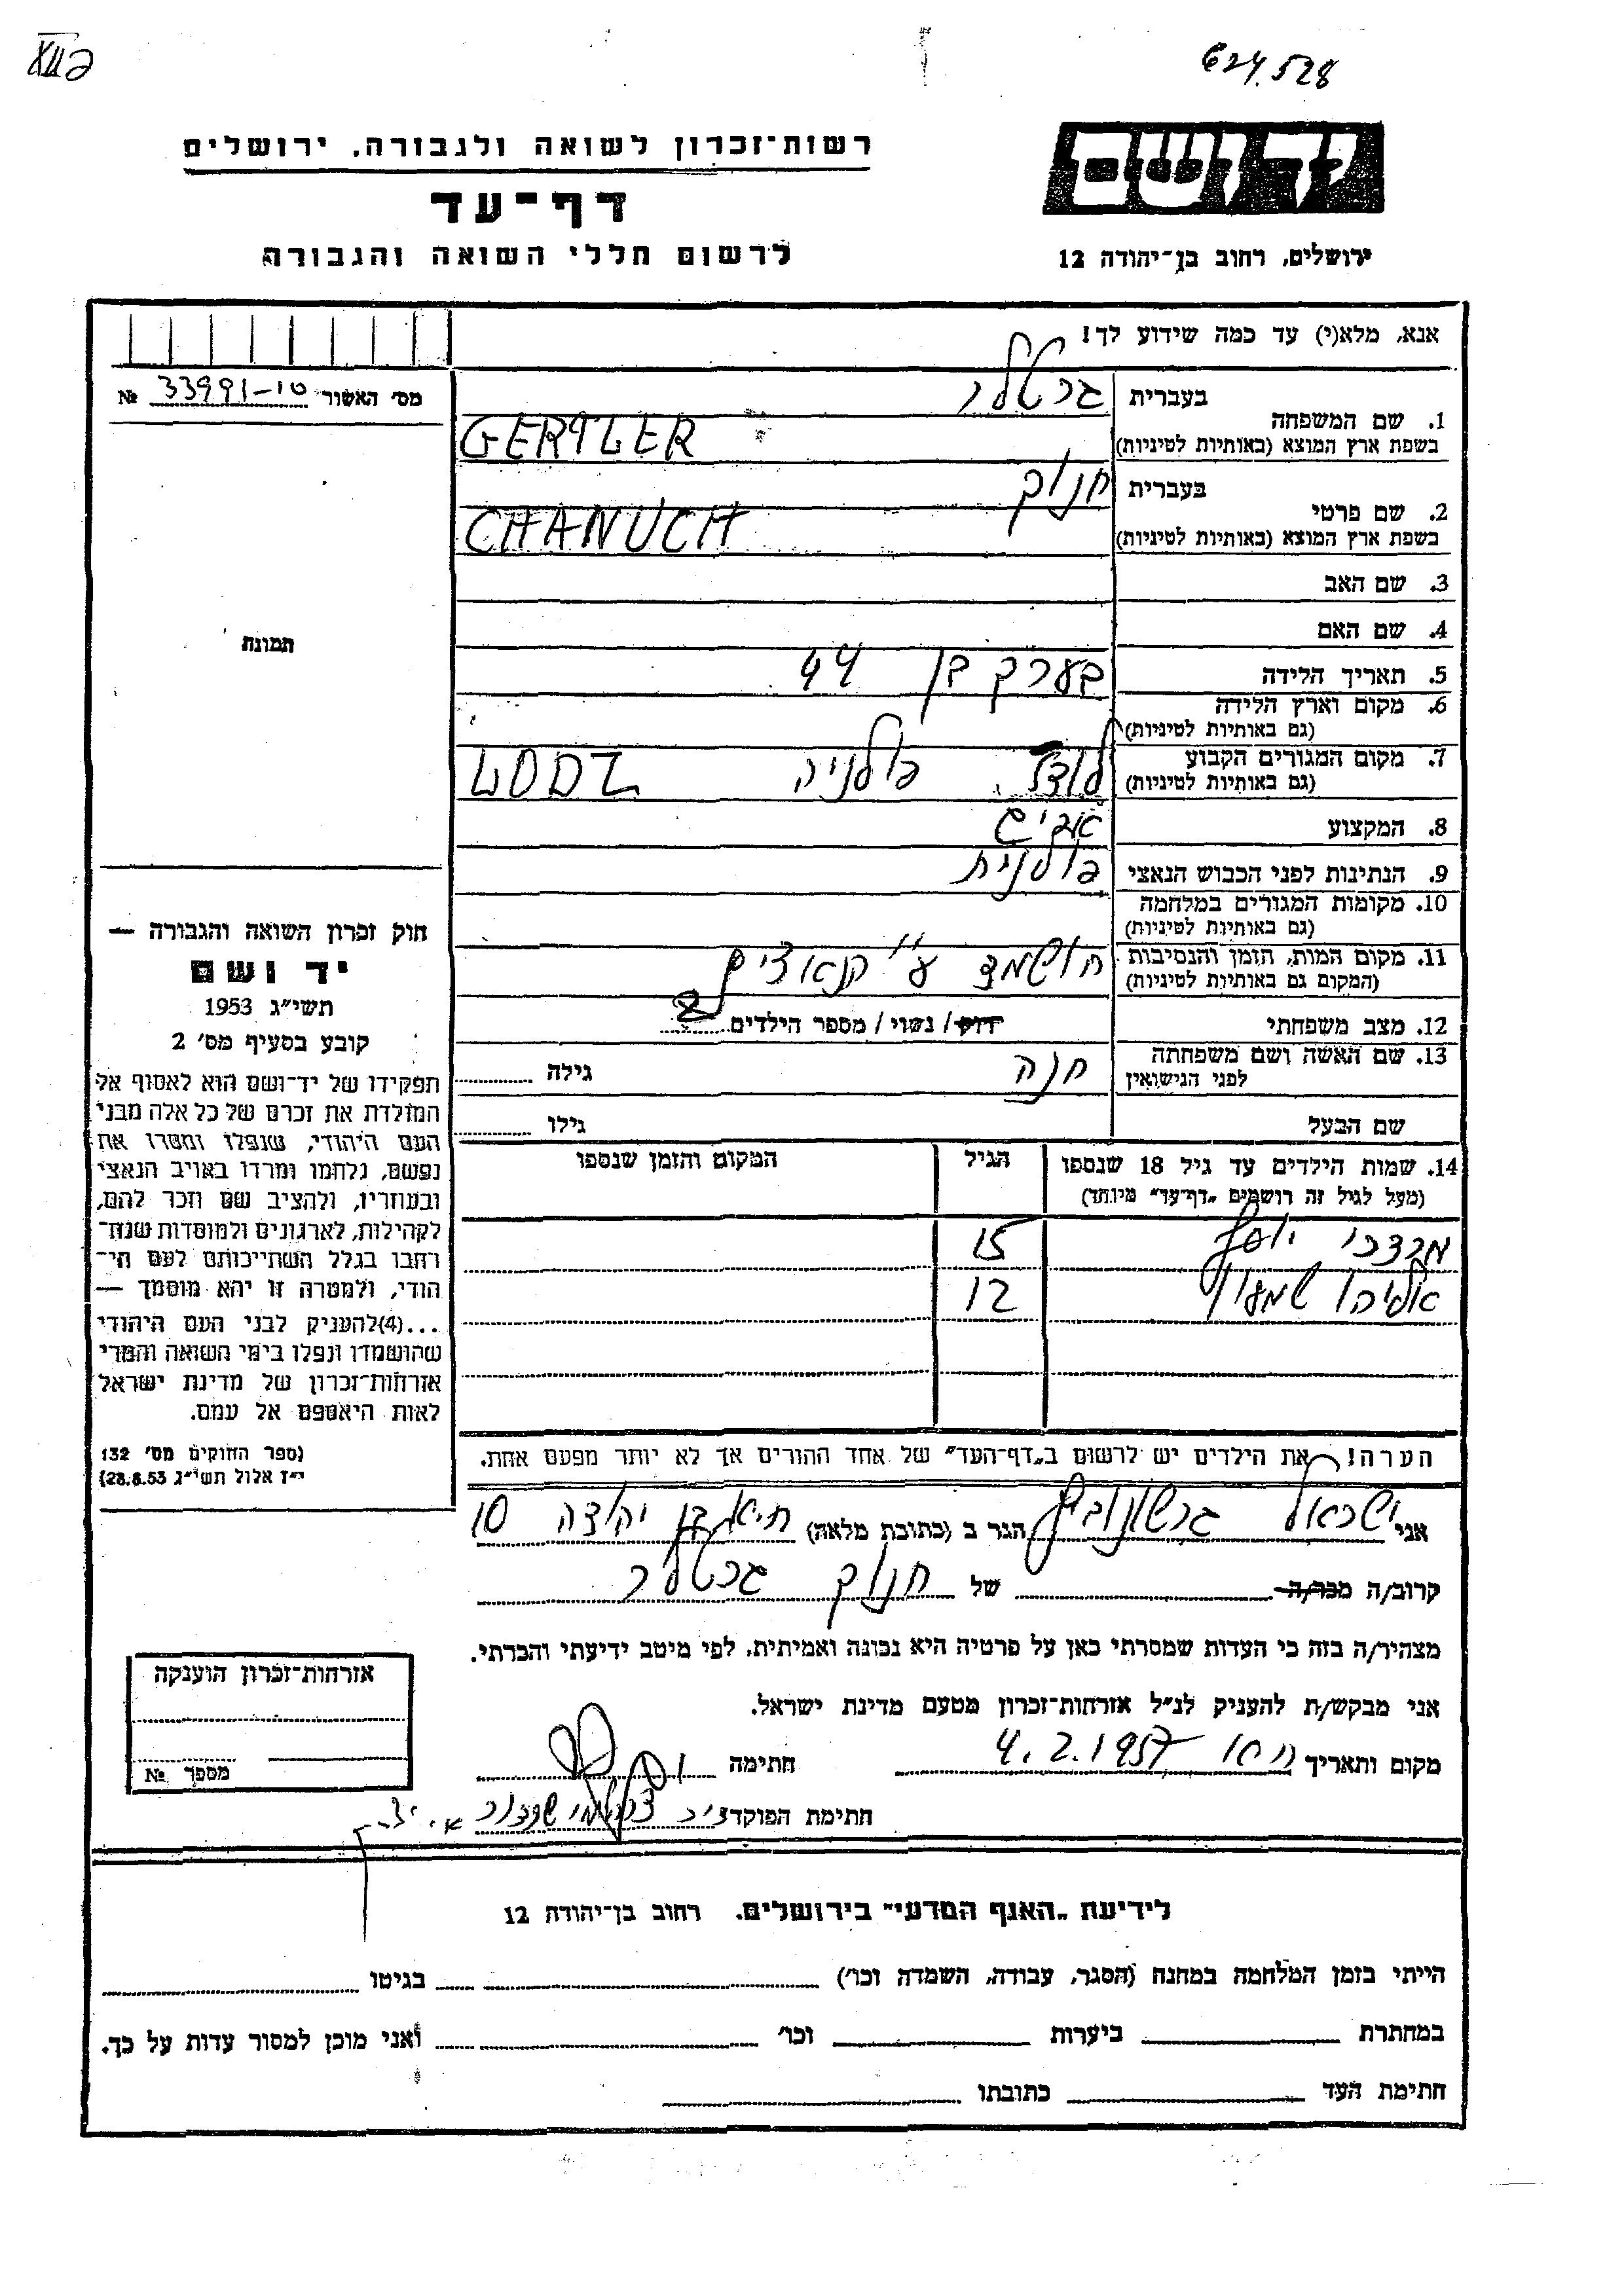 624.528
רשות־זכרון לשואה ולגבורה, ירושלים
דף־עד
לרשום חללי השואה והגבורה
יד ושם
ירושלים, רחוב בן־יהודה 12
אנא, מלא(י) עד כמה שידוע לך!
מס' האשור № 33991-10
1. שם המשפחה
בעברית גרטלר
בשפת ארץ המוצא (באותיות לטיניות) GERTLER
2. שם פרטי
בעברית חנוך
בשפת ארץ המוצא (באותיות לטיניות) CHANUCH
3. שם האב
4. שם האם
5. תאריך הלידה בערך בן 44
6. מקום וארץ הלידה
(גם באותיות לטיניות)
7. מקום המגורים הקבוע לודז' פולניה LODZ
(גם באותיות לטיניות)
8. המקצוע
9. הנתינות לפני הכבוש הנאצי פולנית
10. מקומות המגורים במלחמה
(גם באותיות לטיניות)
11. מקום המות, הזמן והנסיבות הושמד ע"י הנאצים
(המקום גם באותיות לטיניות)
12. מצב משפחתי רווק/ נשוי/ מספר הילדים 2
13. שם האשה ושם משפחתה חנה גילה
לפני הנישואין
שם הבעל גילו
14. שמות הילדים עד גיל 18 שנספו הגיל המקום והזמן שנספו
(מעל לגיל זה רושמים „דף־עד" מיוחד)
מרדכי יוסף 15
אליהו שמעון 12
הערה! את הילדים יש לרשום ב„דף־העד" של אחד ההורים אך לא יותר מפעם אחת.
תמונה
חוק זכרון השואה והגבורה —
יד ושם
תשי"ג 1953
קובע בסעיף מס' 2
תפקידו של יד־ושם הוא לאסוף אל
המולדת את זכרם של כל אלה מבני
העם היהודי, שנפלו ומסרו את
נפשם, נלחמו ומרדו באויב הנאצי
ובעוזריו, ולהציב שם וזכר להם,
לקהילות, לארגונים ולמוסדות שנח־
רבו בגלל השתייכותם לעם הי־
הודי, ולמטרה זו יהא מוסמך —
...(4)להעניק לבני העם היהודי
שהושמדו ונפלו בימי השואה והמרי
אזרחות־זכרון של מדינת ישראל
לאות היאספם אל עמם.
(ספר החוקים מס' 132
י"ז אלול תשי"ג 28.8.53)
אני ישראל גרשונוביץ הגר ב (כתובת מלאה) בן יהודה 10
קרוב/ה מכר/ה של חנוך גרטלר
מצהיר/ה בזה כי העדות שמסרתי כאן על פרטיה היא נכונה ואמיתית, לפי מיטב ידיעתי והכרתי.
אני מבקש/ת להעניק לנ"ל אזרחות־זכרון מטעם מדינת ישראל.
מקום ותאריך 4.2.1957 חתימה
חתימת הפוקד
אזרחות־זכרון הוענקה
מספר №
לידיעת „האגף המדעי" בירושלים. רחוב בן־יהודה 12
הייתי בזמן המלחמה במחנה (הסגר, עבודה, השמדה וכו') בגיטו
במחתרת ביערות וכו' ואני מוכן למסור עדות על כך.
חתימת העד כתובתו